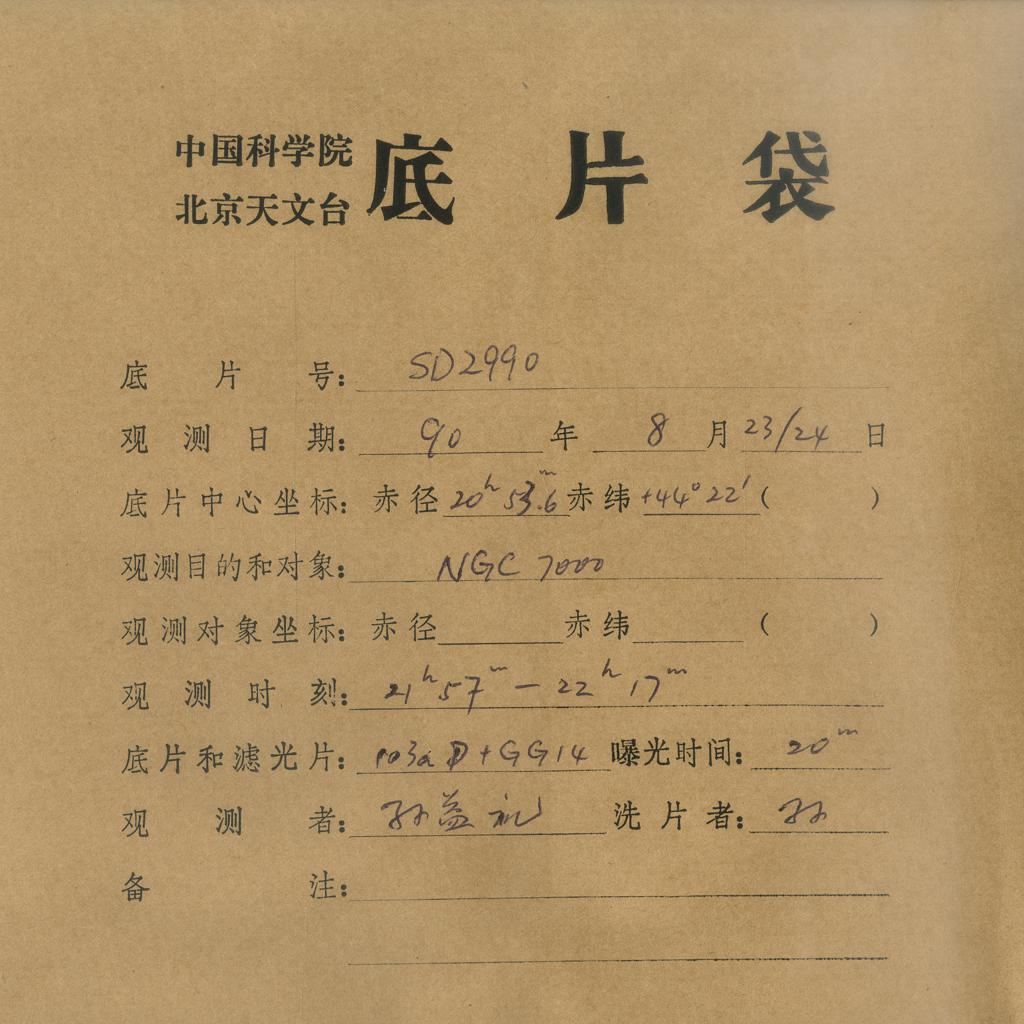 中国科学院
北京天文台
底片袋
底片号：SD2990
观测日期：90年8月23/24日
底片中心坐标：赤径20ʰ53.6ᵐ赤纬+44°22′( )
观测目的和对象：NGC 7000
观测对象坐标：赤径 赤纬 ( )
观测时刻：21ʰ57ᵐ－22ʰ17ᵐ
底片和滤光片：103aD+GG14 曝光时间：20ᵐ
观测者：孙益礼 洗片者：孙
备注：